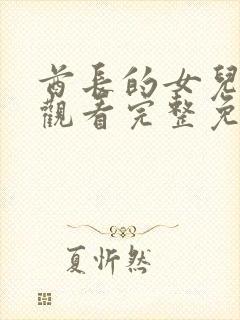 酋長的女兒
觀看完整免
夏忻然